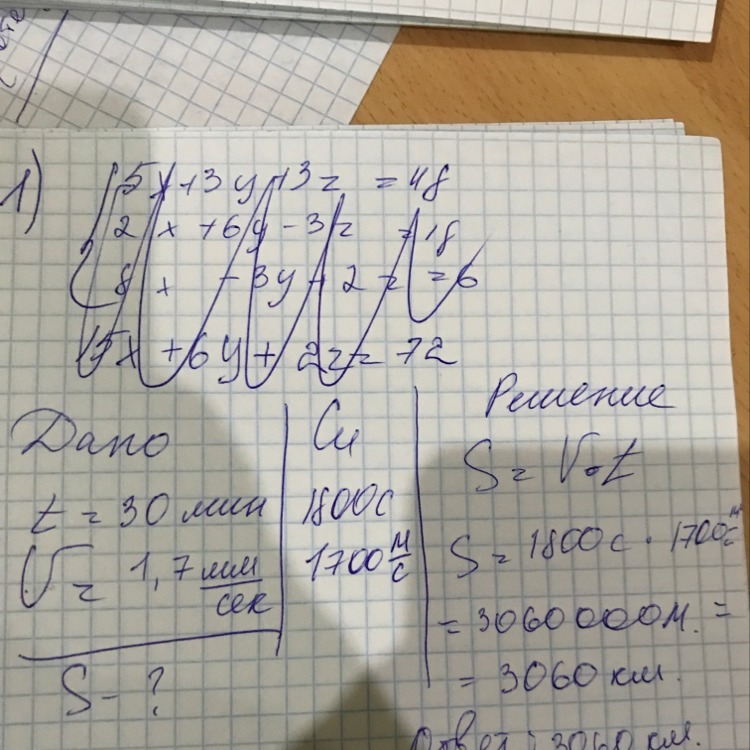 1)
5x + 3y + 3z = 48
2x + 6y - 3z = 18
8x - 3y - 2z = 6
15x + 6y + 2z = 72
Дано
t = 30 мин
V = 1,7 мм/сек
S - ?
Си
1800с
1700 м/с
Решение
S = V•t
S = 1800с · 1700 м/с
= 3060000м. =
= 3060 км.
Ответ: 3060 км.